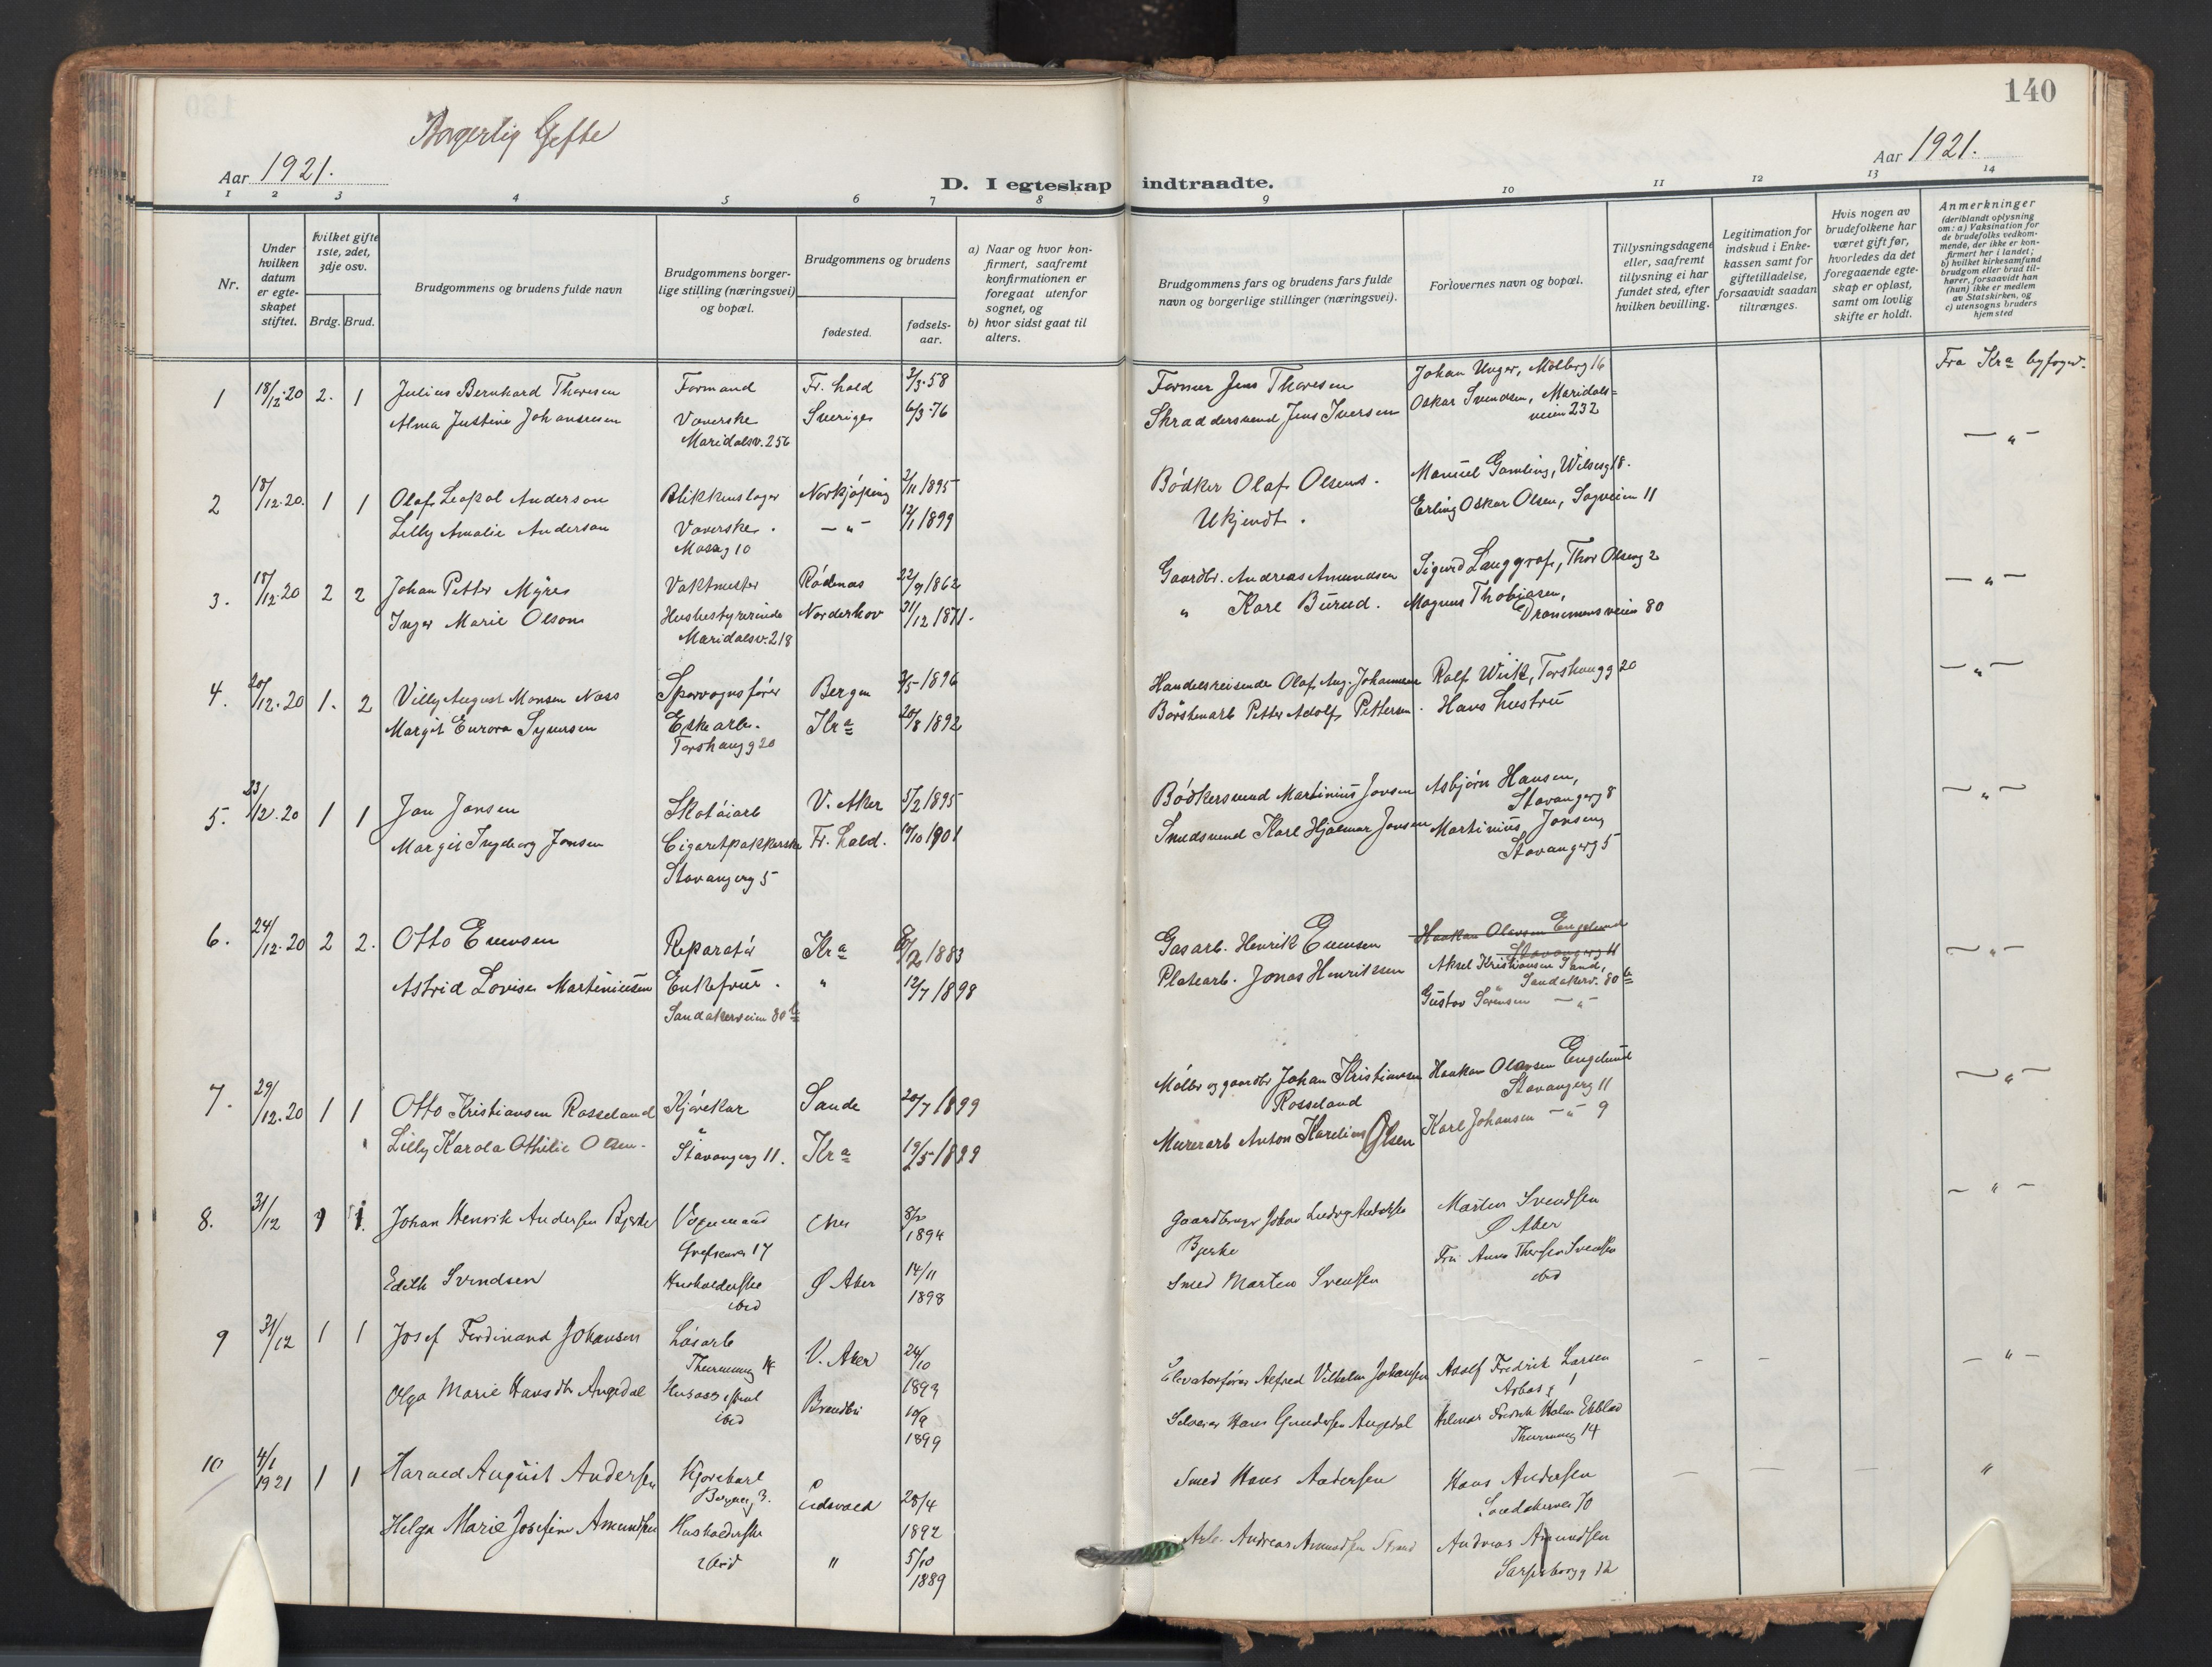 140
Borgerlig Gifte
Aar 1921.
Aar 1921.
D. I egteskap indtraadte.
1 2 3 4 5 6 7 8 9 10 11 12 13 14
Nr.
Under hvilken datum er egteskapet stiftet.
hvilket gifte 1ste, 2det, 3dje osv.
Brdg. Brud.
Brudgommens og brudens fulde navn
Brudgommens borgerlige stilling (næringsvei) og bopæl.
Brudgommens og brudens
fødested.
fødselsaar.
a) Naar og hvor konfirmert, saafremt konfirmationen er foregaat utenfor sognet, og
b) hvor sidst gaat til alters.
Brudgommens fars og brudens fars fulde navn og borgerlige stillinger (næringsvei).
Forlovernes navn og bopæl.
Tillysningsdagene eller, saafremt tillysning ei har fundet sted, efter hvilken bevilling.
Legitimation for indskud i Enkekassen samt for giftetilladelse, forsaavidt saadan tiltrænges.
Hvis nogen av brudefolkene har været gift før, hvorledes da det foregaaende egteskap er opløst, samt om lovlig skifte er holdt.
Anmerkninger
(deriblandt oplysning om: a) Vaksination for de brudefolks vedkommende, der ikke er konfirmert her i landet;
b) hvilket kirkesamfund brudgom eller brud tilhører, forsaavidt han (hun) ikke er medlem av Statskirken, og
c) utensogns bruders hjemsted
1 18/12-20 2. 1 Julius Bernhard Thoresen Formand Fr. hald 3/3-58 Farmer Jens Thoresen Johan Unger, Mølberg 16 Fra Kra byfoged.
Alma Justine Johannesen Væverske Sverige 6/3-76 Skraddersvend Jens Iversen Oskar Svendsen, Maridals=
Maridalsv. 256 veien 232 — " —
2 18/12-20. 1 1 Olaf Leopol Anderson Blikkenslager Norkjøping 2/11 1895 Bødker Olaf Olsens. Manuel Gamling, Wilsesg 18.
Lilly Amalie Anderson Væverske. — " — 12/1 1899 Ukjendt. Erling Oskar Olsen, Sagveien 11
Mosseg 10
3. 18/12-20 2 2 Johan Petter Myres Vaktmester Rødenæs 22/9 1862 Gaardbr. Andreas Amundsen Sigurd Langgraf, Thor Olseng 2 — " —
Inger Marie Olsen Husbestyrerinde Norderhov 31/12 1871. " Karl Burud. Magnus Thobiasen,
Maridalsv. 218 Drammensveien 80
4. 20/12-20 1. 2 Villy August Monsen Næss Sporvognsfører Bergen 3/5-1896 Handelsreisende Olaf Aug. Johannesen Ralf Wiik, Torshaugg 20 — " —
Margit Eurora Syversen Eskearb. Kra 20/8 1892 Børstenarb Petter Adolf Pettersen. Hans hustru
Torshaugg 20
5. 23/12-20 1 1 Jan Jonsen Skotøiarb V. Aker 5/2 1895 Bødkersvend Martinius Jonsen Asbjørn Hansen, — " —
Stavangerg 8
Margit Ingeborg Jonsen Cigaretpakkerske Fr. hald. 12/10 1901 Smedsvend Karl Hjalmar Jonsen Martinius Jonsen,
Stavangerg 5 Stavangerg 5
6. 24/12-20 2 2. Otto Evensen Reparatør Kra /2 1883 Gasarb. Henrik Evensen Haakon Olavsen Engelund — " —
Stavangerg 11
Astrid Lovise Martiniussen Enkefrue. " 12/7 1898 Platearb. Jonas Henriksen Aksel Kristiansen Sand,
Sandakerv. 80 b
Sandakerveien 80 b Gustav Sørensen — " —
7. 29/12-20 1 1 Otto Kristiansen Rosseland Kjørekar Sande 20/7 1899 Møller og gaardbr Johan Kristiansen Haakon Olavsen Engelund — " —
Rosseland Stavangerg 11
Lilly Karola Othilie Olsen. " Kra 19/5 1899 Murerarb Anton Karelius Olsen Karl Johansen — " — 9
Stavangerg 11.
8. 31/12 1 1. Johan Henrik Andersen Bjerke Vognmand 8/2 1894 Gaardbruger Johan Ludvig Andersen Marten Svendsen — " —
Grefsenv 17 Bjerke Ø Aker
Edith Svendsen Husholderske Ø Aker 14/11 1898 Smed Marten Svendsen Fru Anna Svendsen
ibid ibid
9 31/12 1 1 Josef Ferdinand Johansen Løsarb V. Aker 24/10 1893 Elevatorfører Alfred Vilhelm Johansen Adolf Fredrik Larsen — — — " —
Thurmanng 14 Arbosg 1
Olga Marie Hansdtr Angedal Brandbu 10/9 1899 Selveier Hans Gundersen Angedal Hilmar Fredrik Holm Ekblad
ibid Thurmanng 14
10 4/1 1921 1 1 Harald August Andersen Kjørekarl Eidsvold 28/4 1892 Smed Hans Andersen Hans Andersen — — — "
Bergeng 3. Sandakerv 70
Helga Marie Josefine Amundsen Husholderske " 5/10 1889 Arb. Andreas Amundsen Strand Andreas Amundsen
ibid Sarpsborgg 12